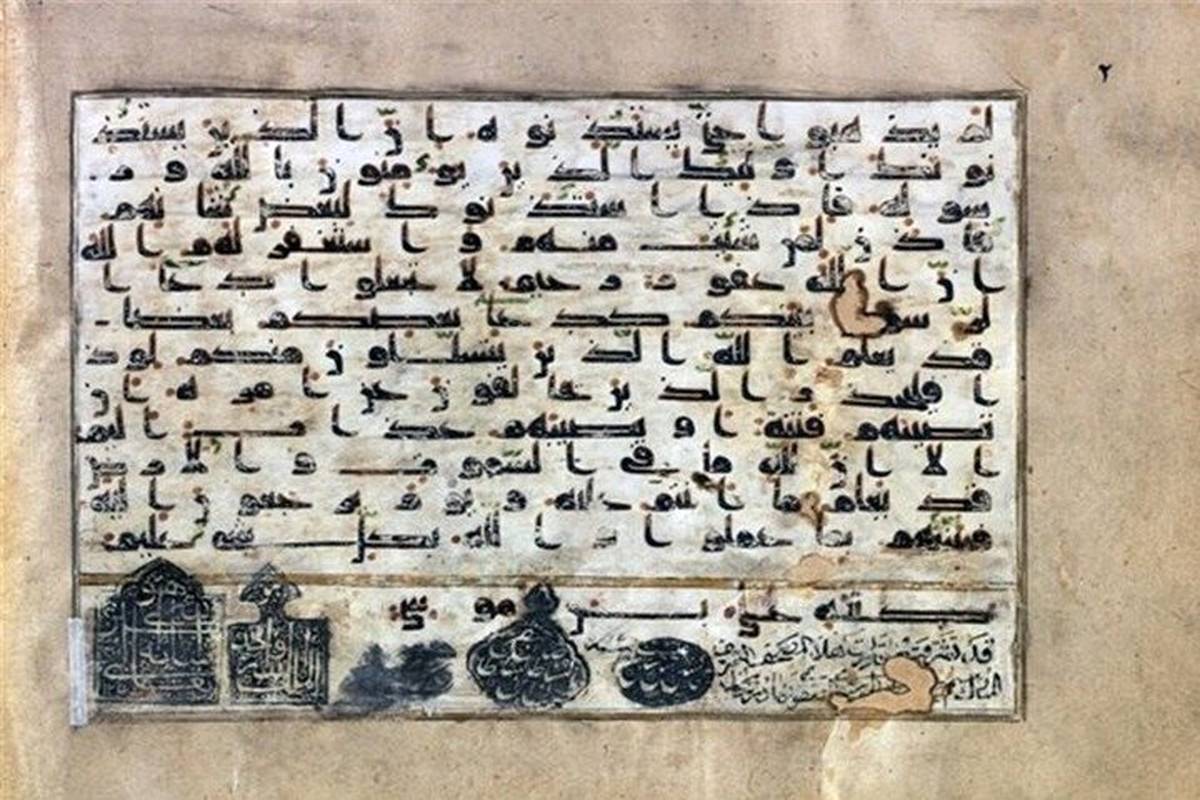 ٢
لم يذهبوا حتى يستئذنوه ان الذين يستئذ
نونك اولئك الذين يؤمنون بالله و ر
سوله فاذا استئذنوك لبعض شأنهم
فأذن لمن شئت منهم و استغفر لهم الله
ان الله غفور رحيم لا تجعلوا دعا ا
لرسول بينكم كدعا بعضكم بعضا
قد يعلم الله الذين يتسللون منكم لواذ
ا فليحذر الذين يخالفون عن امره ان
تصيبهم فتنة او يصيبهم عذاب اليم
الا ان لله ما في السموت و الارض
قد يعلم ما انتم عليه و يوم يرجعون اليه
فينبئهم بما عملوا و الله بكل شىء عليم
كتبه علي بن موسى
قد تشرفت بزيارت هذا المصحف الشريف